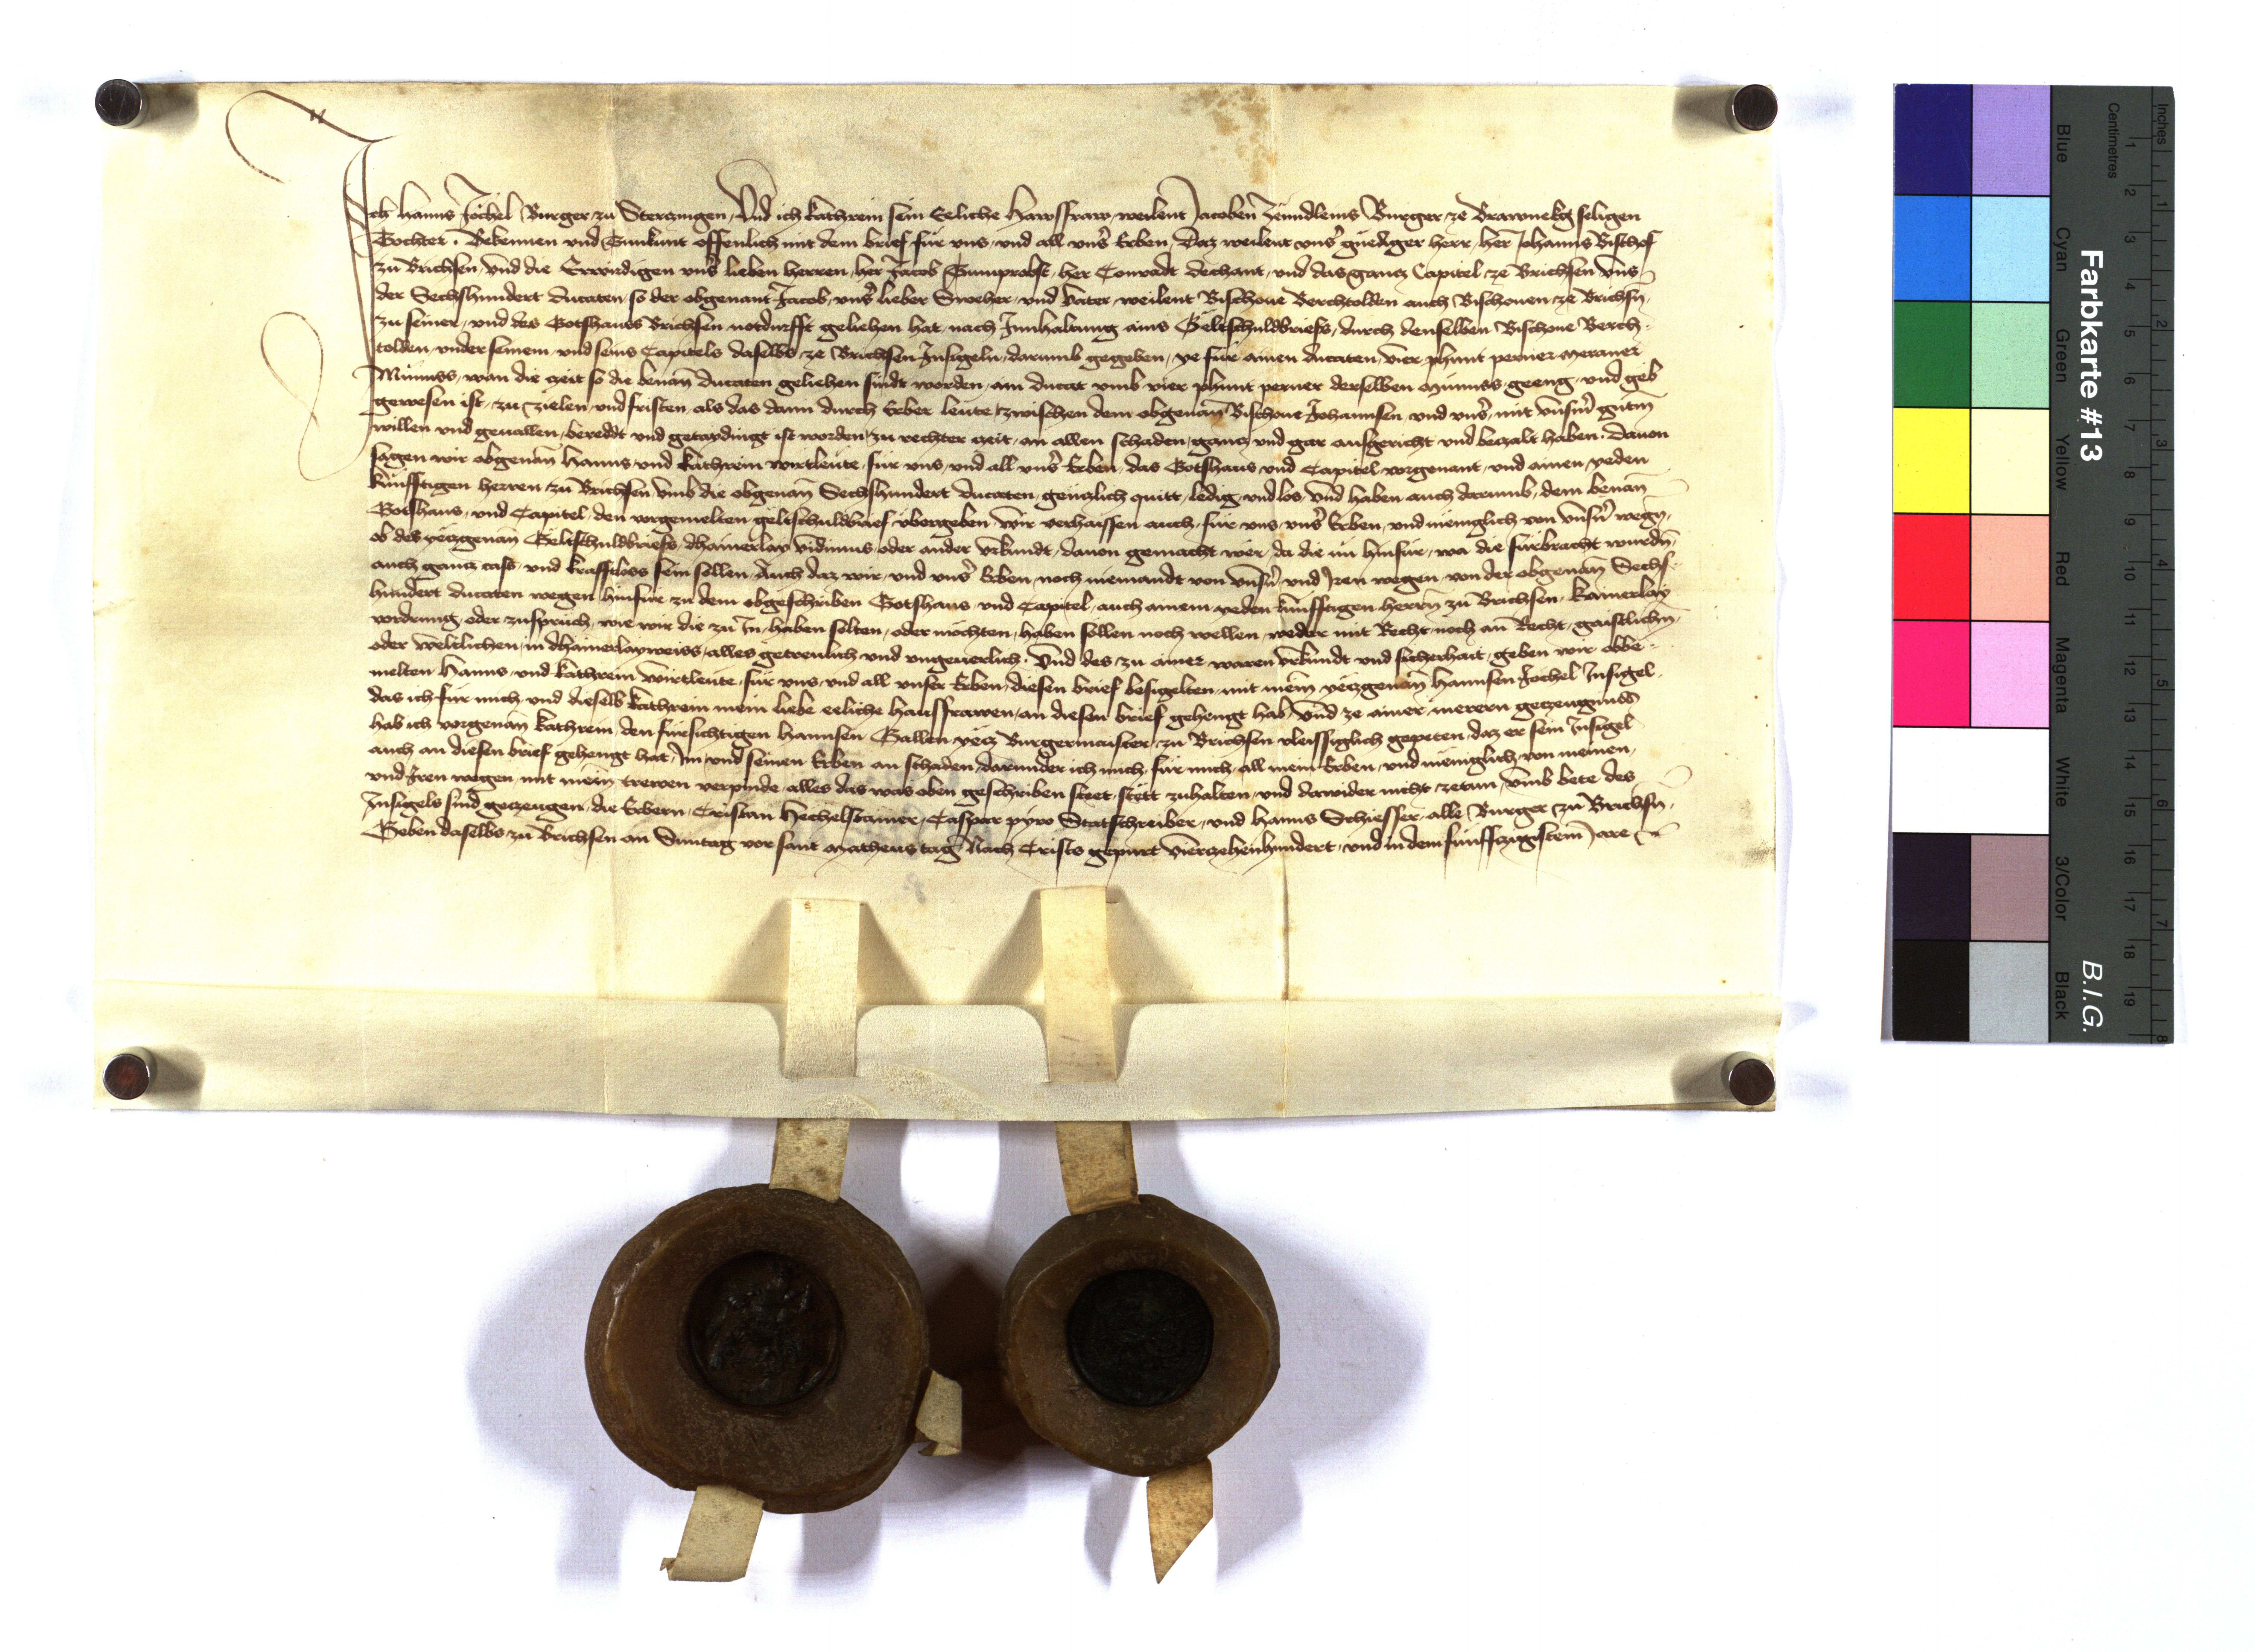 Ich Hanns Jöchel Burger zu Stertzingen, Und ich kathrein sein Eeliche Hawsfraw, weilent Jacoben Zeindleins Burger ze Brawnekg seligen
Tochter. Bekennen und Tunkunt offenlich mit dem brief für uns, und all uns̕ Erben, Daz weilent uns̕ gnediger herr, her Johanns Bischof
zu Brichsen, und die Erwirdigen uns̕ lieben herren, her Jacob Tumprobst, her Conradt dechant, und das gantz Capitel ze Brichsen uns
der Sechshundert ducaten, so der obgenant Jacob, uns̕ lieber Sweher, und vater, weilent Bischove Berchtolden auch Bischoven ze Brichsn̄,
zu seiner, und des Gotshaus Brichsen notdurfft geliehen hat, nach Innhaltung ains Geltschuldbriefs, durch denselben Bischove Berch-
tolden, under seinem, und seins Capitels daselbs ze Brichsen Insigeln, darumb gegeben, ye für ainen ducaten, vier phunt perner meraner
Münnss, wan die zeit so die benan̄ ducaten geliehen sindt worden, ain ducat umb vier phunt perner derselben Münnss, geeng, und geb
gewesen ist, zu zielen, und fristen, als das dann durch Erber leute, zwischen dem obgenan̄ Bischove Johannsen, und uns̕, mit unsn̄ gutm̄
willen und gevallen, bereddt und getaydingt ist worden, zu rechter zeit, an allen schaden, gantz und gar ausgericht und betzalt haben. Davon
sagen wir obgenan̄ Hanns, und kathrein wirtleute, für uns, und all uns̕ Erben, das Gotshaus und Capitel vorgenant, und ainen yeden
künfftigen herren zu Brichsen umb die obgenan̄ Sechshundert ducaten, gentzlich quitt, ledig, und los, und haben auch darumb, dem benan̄
Gotshaus, und Capitel, den vorgemelten geltschuldbrief übergeben, wir verhaissen auch, für uns, uns̕ Erben, und mēniglich von unsn̕ wegn̄,
ob des yetzgenan̄ Geltschuldbriefs, dhainerlay vidimus, oder ander urkundt, davon gemacht wēr, da die nū hinfür, wa die fürbracht wurdn̄,
auch gantz cass, und krafftloss sein sollen, Auch daz wir, und uns̕ Erben, noch niemandt von unsn̕, und Iren wegen, von der obgenan̄ Sechs-
hundert ducaten wegen, hinfür zu dem obgeschriben Gotshaus, und Capitel, auch ainem yeden künfftigen herrn̄ zu Brichsen, kainerlay
vordrung, oder zuspruch, wie wir die zu In, haben solten, oder möchten, haben sollen noch wellen, weder mit Recht, noch an Recht, gaistlichn̄,
oder weltlichen, in dhainerlayweiss, alles getrewlich und ungeverlich. Und des zu ainer waren urkundt und sicherhait, geben wir obbe-
melten Hanns, und kathrein wirtleute, für uns, und all unser Erben, diesen brief besigelten, mit mein̄ yetzgenan̄ Hannsen Jöchel Insigel,
das ich für mich, und dieselb kathrein mein liebe eeliche hausfrawen, an diesen brief gehengt hab, Und ze ainer merern getzeugnuss
hab ich vorgenan̄ kathrein, den fürsichtigen Hannsen Gallen, yetz Burgermaister zu Brichsen vleissiglich gepeten, daz er sein Insigel
auch an diesen brief gehengt hat, Im und seinen Erben an schaden, darunder ich mich, für mich, all mein Erben, und mēniglich von meinen,
und Iren wegen, mit mein̄ trewen verpinde, alles das was oben geschriben steet, stett zuhalten, und dawider nicht zetun, umb bete des
Insigels sind getzeugen, die Erbern, Cristan Hechelstainer, Caspar pyro Statschreiber, und Hanns Schiesser, alle Burger zu Brichsn̄,
Geben daselbs zu Brichsen an Suntag vor sant Matheus tag Nach Crists gepurt viertzehenhundert, und in dem fünfftzigistem Jare
Farbkarte #13
B.I.G.
Blue
Cyan
Green
Yellow
Red
Magenta
White
3/Color
Black
Inches
1 2 3 4 5 6 7 8
Centimetres
1 2 3 4 5 6 7 8 9 10 11 12 13 14 15 16 17 18 19